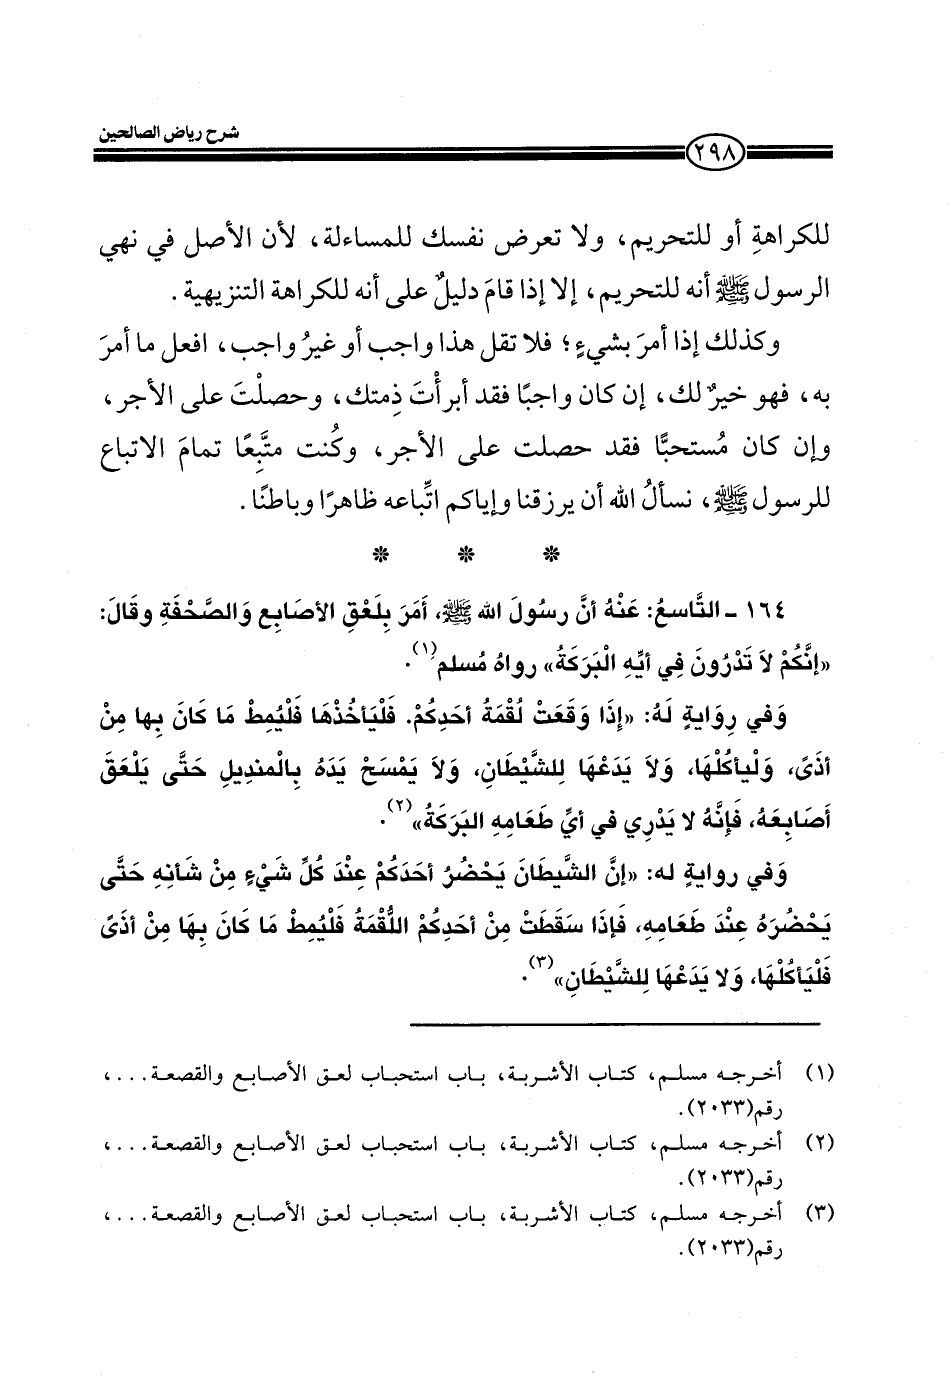 شرح رياض الصالحين
٢٩٨
للكراهةِ أو للتحريم، ولا تعرض نفسك للمساءلة، لأن الأصل في نهي
الرسول ﷺ أنه للتحريم، إلا إذا قامَ دليلٌ على أنه للكراهة التنزيهية.
وكذلك إذا أمرَ بشيءٍ؛ فلا تقل هذا واجب أو غيرُ واجب، افعل ما أمرَ
به، فهو خيرٌ لك، إن كان واجبًا فقد أبرأْتَ ذِمتك، وحصلْتَ على الأجر،
وإن كان مُستحبًّا فقد حصلت على الأجر، وكُنت متَّبِعًا تمامَ الاتباع
للرسول ﷺ، نسألُ الله أن يرزقنا وإياكم اتِّباعه ظاهرًا وباطنًا.
* * *
١٦٤ - التَّاسعُ: عَنْهُ أنَّ رسُولَ الله ﷺ، أمَرَ بِلَعْقِ الأصَابِعِ وَالصَّحْفَةِ وقَالَ:
«إنَّكُمْ لاَ تَدْرُونَ فِي أيِّهِ الْبَرَكَةُ» رواهُ مُسلم(١).
وَفي رِوَايةٍ لَهُ: «إِذَا وَقَعَتْ لُقْمَةُ أحَدِكُمْ. فَلْيَأخُذْهَا فَلْيُمِطْ مَا كَانَ بِها مِنْ
أذَىً، وَلْيأكُلْهَا، وَلاَ يَدَعْهَا لِلشَّيْطَانِ، وَلاَ يَمْسَحْ يَدَهُ بِالْمنِديلِ حَتَّى يَلْعَقَ
أصَابِعَهُ، فَإِنَّهُ لا يَدْرِي في أيِّ طَعَامِهِ البَرَكَةُ»(٢).
وَفي روايةٍ له: «إنَّ الشَّيطَانَ يَحْضُرُ أحَدَكُمْ عِنْدَ كُلِّ شَيْءٍ مِنْ شَأنِهِ حَتَّى
يَحْضُرَهُ عِنْدَ طَعَامِهِ، فَإذَا سَقَطَتْ مِنْ أحَدِكُمْ اللُّقْمَةُ فَلْيُمِطْ مَا كَانَ بِهَا مِنْ أذَىً
فَلْيَأكُلْهَا، وَلا يَدَعْهَا لِلشَّيْطَانِ»(٣).
(١) أخرجه مسلم، كتاب الأشربة، باب استحباب لعق الأصابع والقصعة...،
رقم(٢٠٣٣).
(٢) أخرجه مسلم، كتاب الأشربة، باب استحباب لعق الأصابع والقصعة...،
رقم(٢٠٣٣).
(٣) أخرجه مسلم، كتاب الأشربة، باب استحباب لعق الأصابع والقصعة...،
رقم(٢٠٣٣).